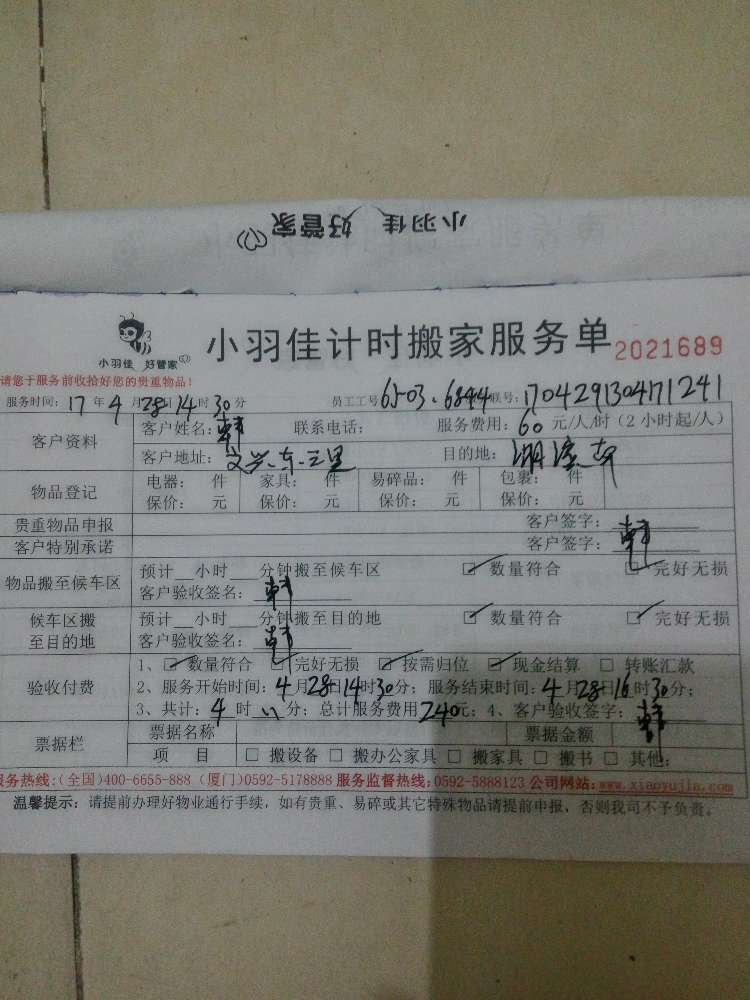 小羽佳 好管家
小羽佳 好管家
小羽佳计时搬家服务单 2021689
请您于服务前收拾好您的贵重物品！
服务时间：17年4月28 14时30分 员工工号6503、6844 联号：1704291304171241
客户资料
客户姓名：韩 联系电话： 服务费用：60元/人/时（2小时起/人）
客户地址：文兴东三里 目的地：湖滨
物品登记
电器： 件 家具： 件 易碎品： 件 包裹： 件
保价： 元 保价： 元 保价： 元 保价： 元
贵重物品申报 客户签字：
客户特别承诺 客户签字：韩
物品搬至候车区
预计__小时__分钟搬至候车区 ☑数量符合 ☑完好无损
客户验收签名：韩
候车区搬至目的地
预计__小时__分钟搬至目的地 ☑数量符合 ☑完好无损
客户验收签名：韩
验收付费
1、☑数量符合 ☑完好无损 ☑按需归位 ☑现金结算 □转账汇款
2、服务开始时间：4月28 14时30分；服务结束时间：4月28 16时30分；
3、共计：4时 分；总计服务费用240元；4、客户验收签字：韩
票据栏
票据名称 票据金额
项 目 □搬设备 □搬办公家具 □搬家具 □搬书 □其他：
服务热线：(全国)400-6655-888 (厦门)0592-5178888 服务监督热线：0592-5888123 公司网站：www.xiaoyujia.com
温馨提示：请提前办理好物业通行手续，如有贵重、易碎或其它特殊物品请提前申报，否则我司不予负责。